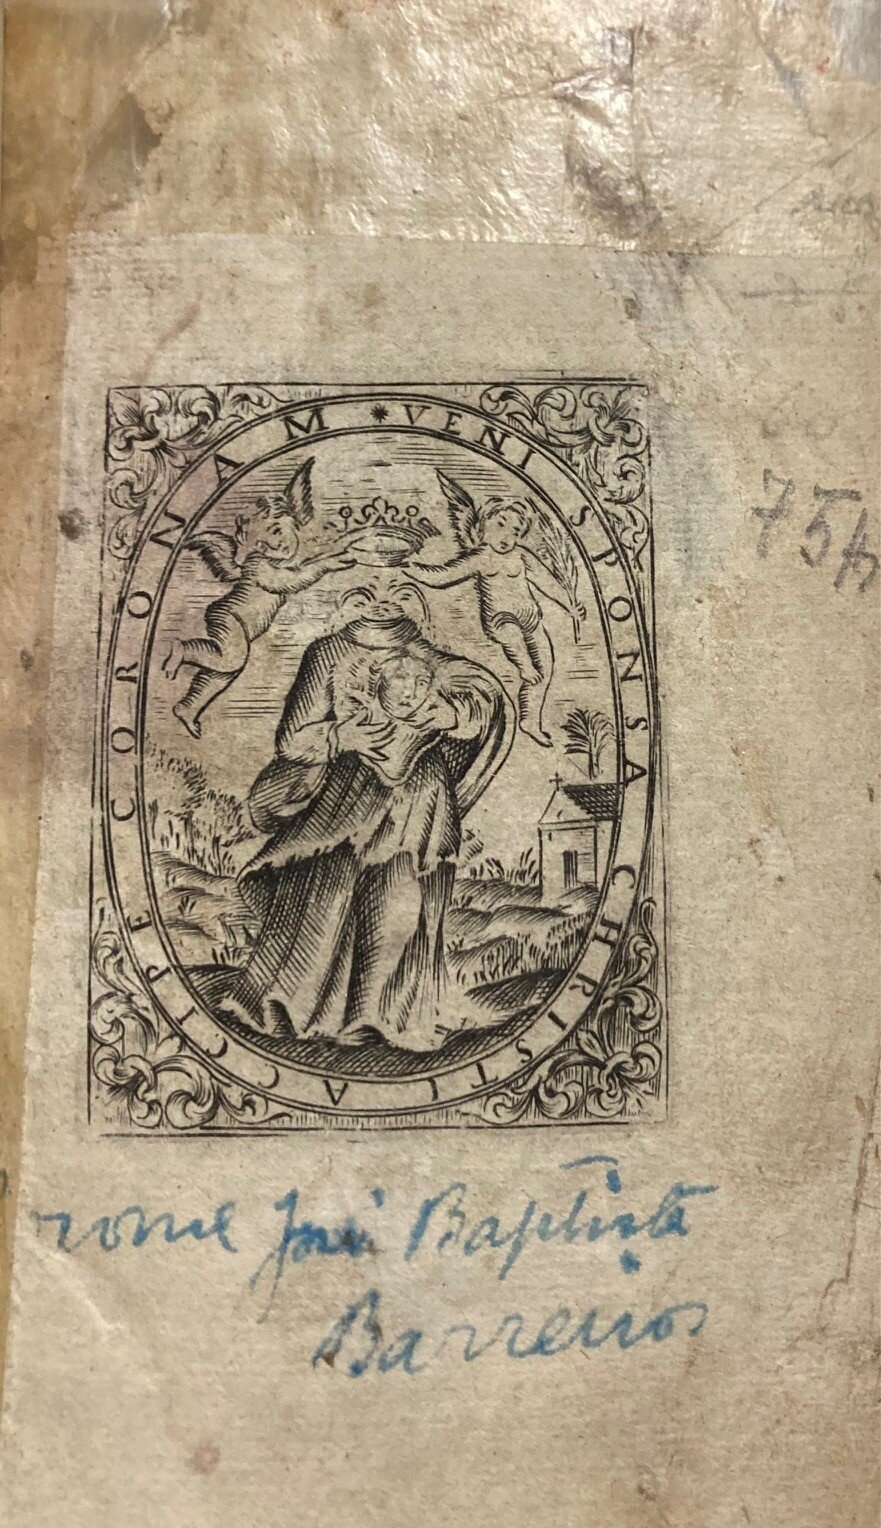 VENI SPONSA CHRISTI ACCIPE CORONAM
75
nome José Baptista
Barreiros